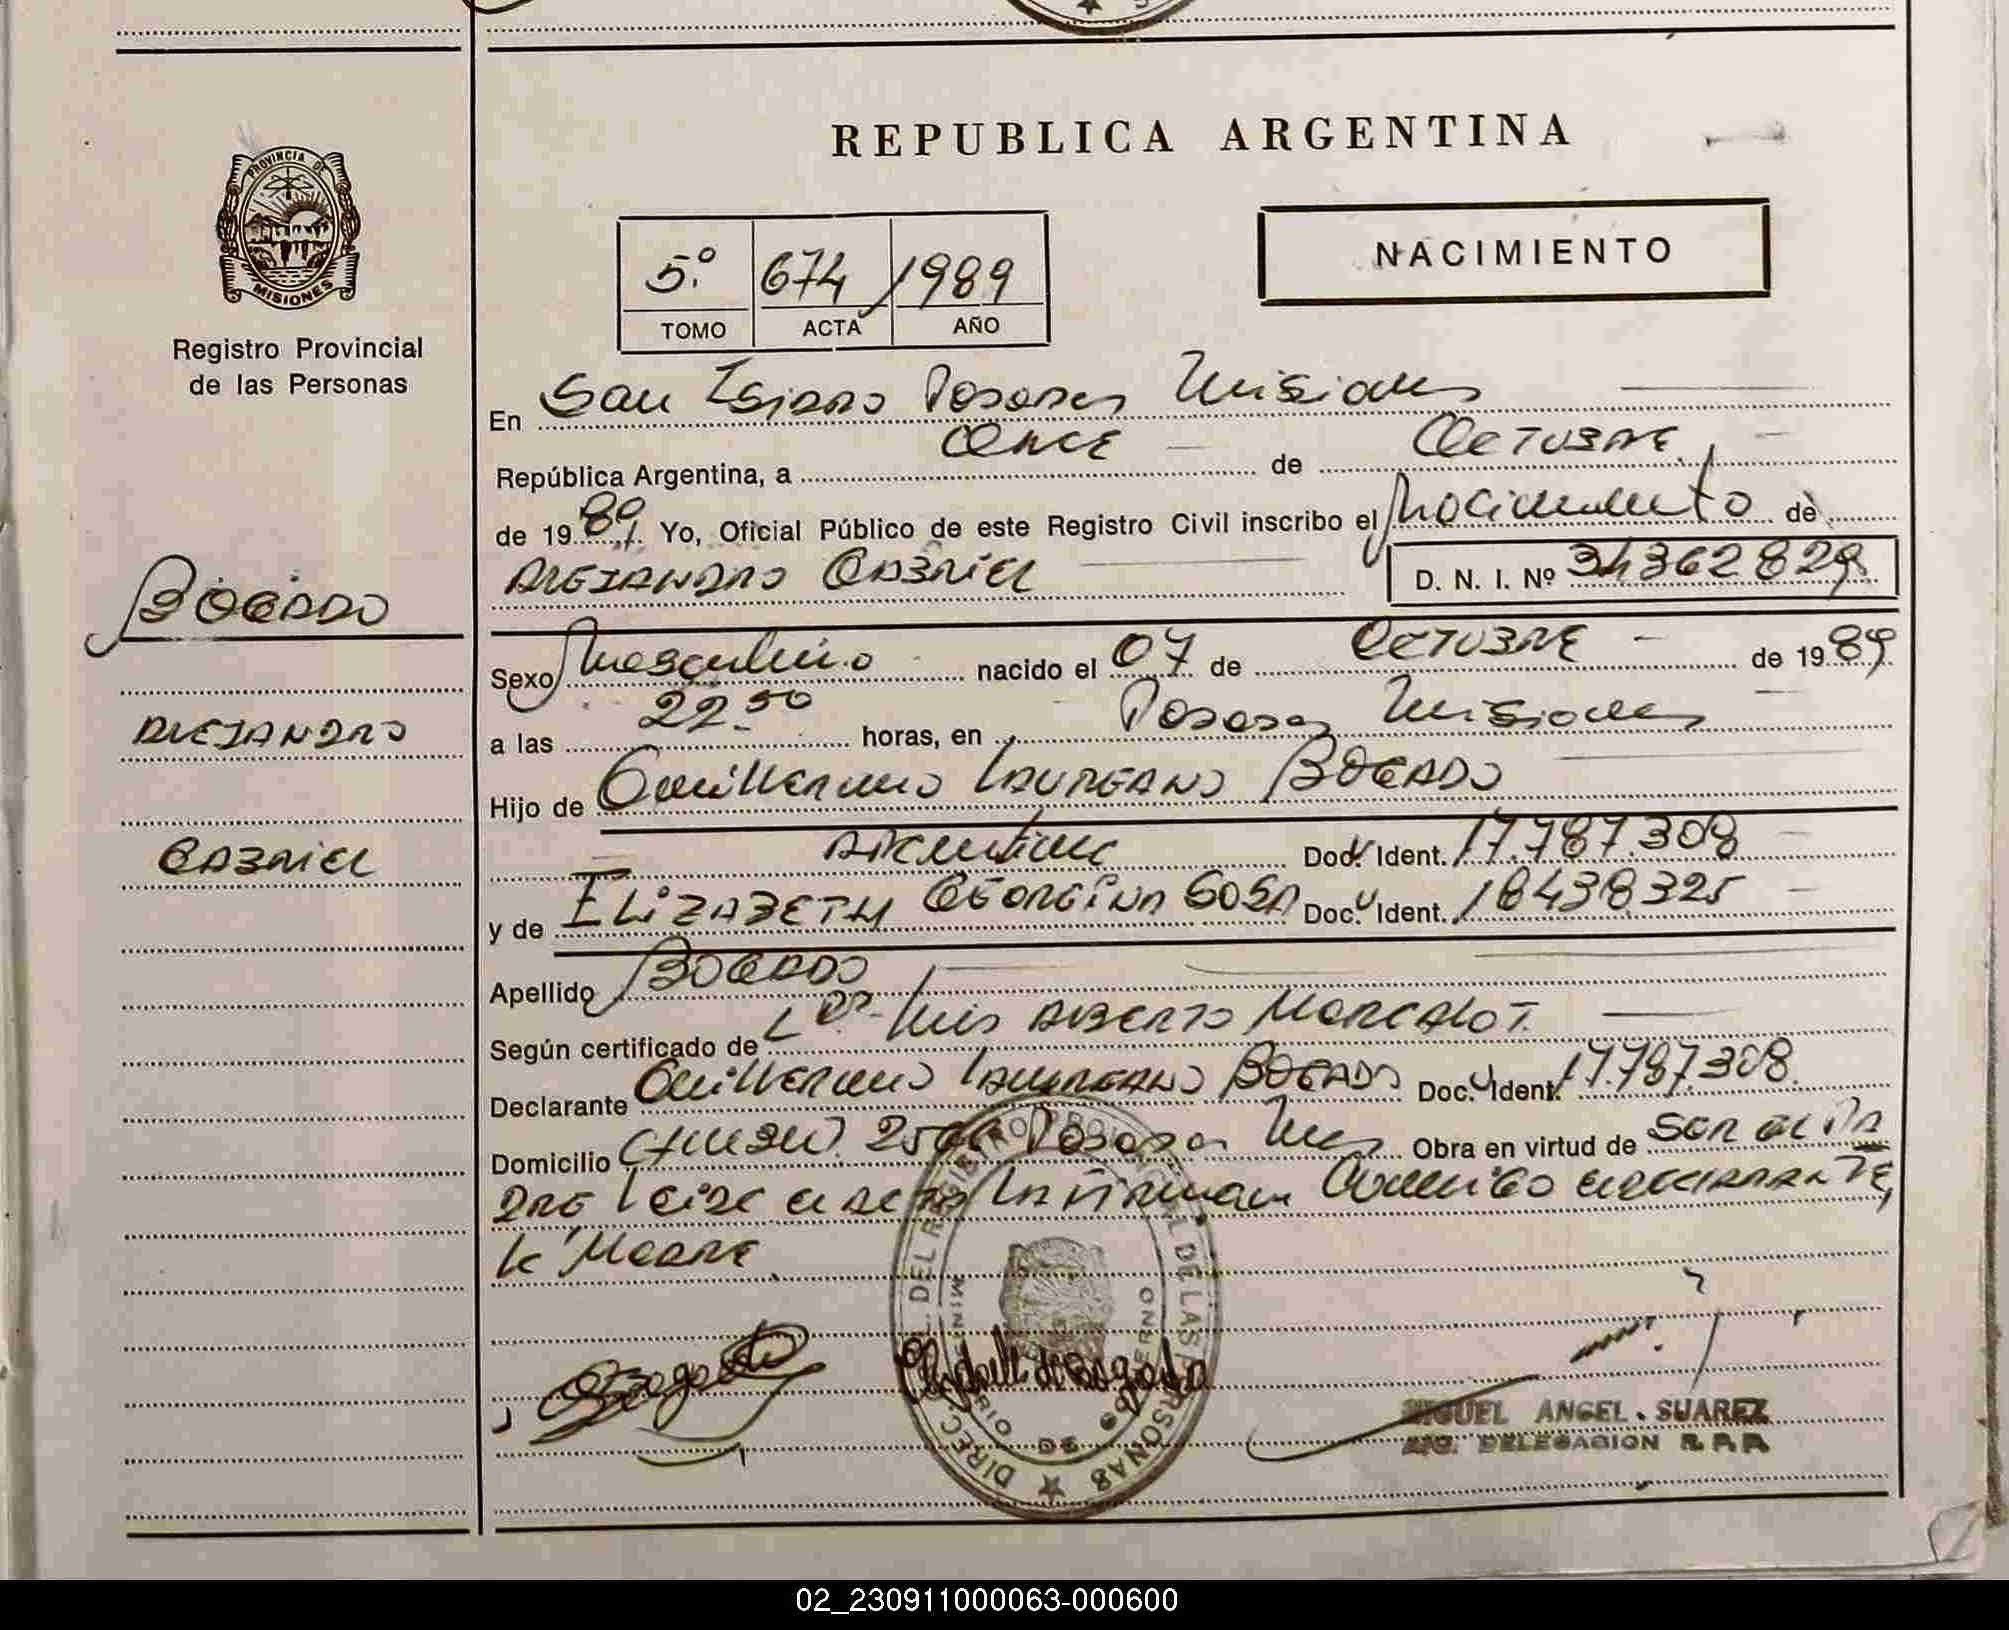 REPUBLICA ARGENTINA
PROVINCIA DE
MISIONES
Registro Provincial
de las Personas
NACIMIENTO
5º 674 / 1989
TOMO ACTA AÑO
En San Isidro Posadas Misiones
República Argentina, a Once de Octubre
de 1989. Yo, Oficial Público de este Registro Civil inscribo el Nacimiento de
Alejandro Gabriel D. N. I. Nº 34362829
BOGADO
Sexo Masculino nacido el 07 de Octubre de 1989
ALEJANDRO
a las 22 50 horas, en Posadas Misiones
Hijo de Guillermo Laureano BOGADO
GABRIEL
Argentino Doc. Ident. 17.787.308
y de Elizabeth Georgina Sosa Doc. Ident. 18438325
Apellido BOGADO
Según certificado de Dr. Luis Alberto
Declarante Guillermo Laureano BOGADO Doc. Ident. 17.787.308
Domicilio Posadas Mnes Obra en virtud de ser el Pa
dre Leída el acta la firman conmigo el declarante,
la Madre
DIRECC DEL REGISTRO PROVINCIAL DE LAS PERSONAS
MINISTERIO DE GOBIERNO
Bogado
Elizabeth de Bogado
MIGUEL ANGEL SUAREZ
DELEGACION R. P. P.
02_230911000063-000600